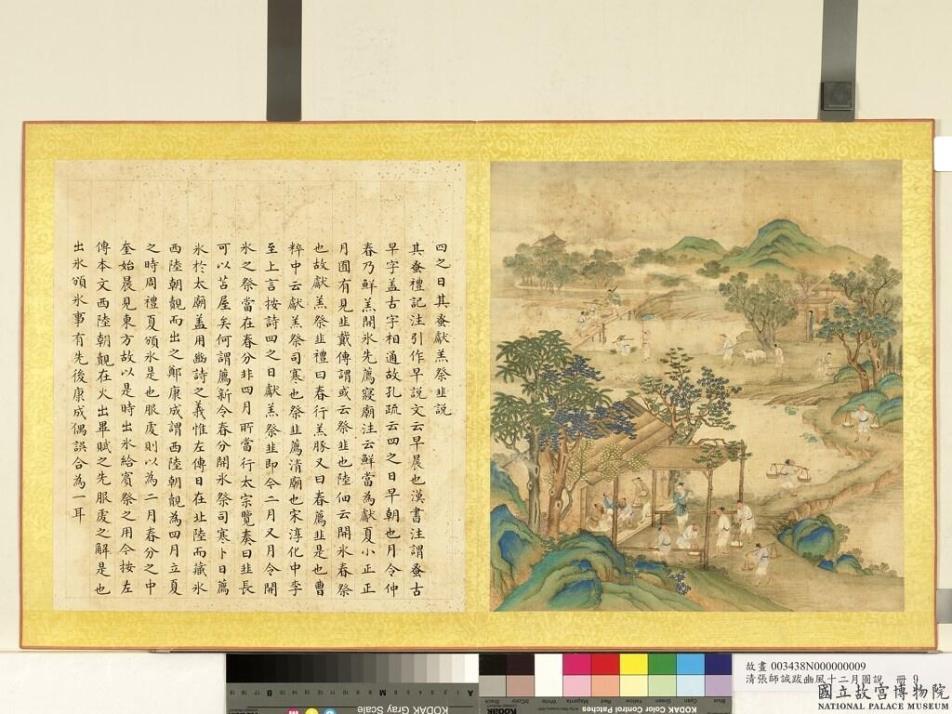 四之日其蚤獻羔祭韭説
其蚤禮記注引作早説文云早晨也漢書注謂蚤古
早字盖古字相通故孔疏云四之日早朝也月令仲
春乃鮮羔開氷先薦寢廟注云鮮當為獻夏小正正
月囿有見韭戴傳謂或云祭韭也陸佃云開氷春祭
也故獻羔祭韭禮曰春行羔豚又曰春薦韭是也曹
粹中云獻羔祭司寒也祭韭薦清廟也宋淳化中李
至上言按詩四之日獻羔祭韭即今二月又月令開
氷之祭當在春分非四月所當行太宗覽奏曰韭長
可以苫屋矣何謂薦新令春分開氷祭司寒卜日薦
氷於太廟盖用豳詩之義惟左傳日在北陸而藏氷
西陸朝覿而出之鄭康成謂西陸朝覿為四月立夏
之時周禮夏頒氷是也服虔則以為二月春分之中
奎始晨見東方故以是時出氷給賓祭之用今按左
傳本文西陸朝覿在火出畢賦之先服虔之解是也
出氷頒氷事有先後康成偶誤合為一耳
KODAK Gray Scale
KODAK Color Control Patches
故畫 003438N000000009
清張師誠跋豳風十二月圖說 冊 9
國立故宮博物院
NATIONAL PALACE MUSEUM